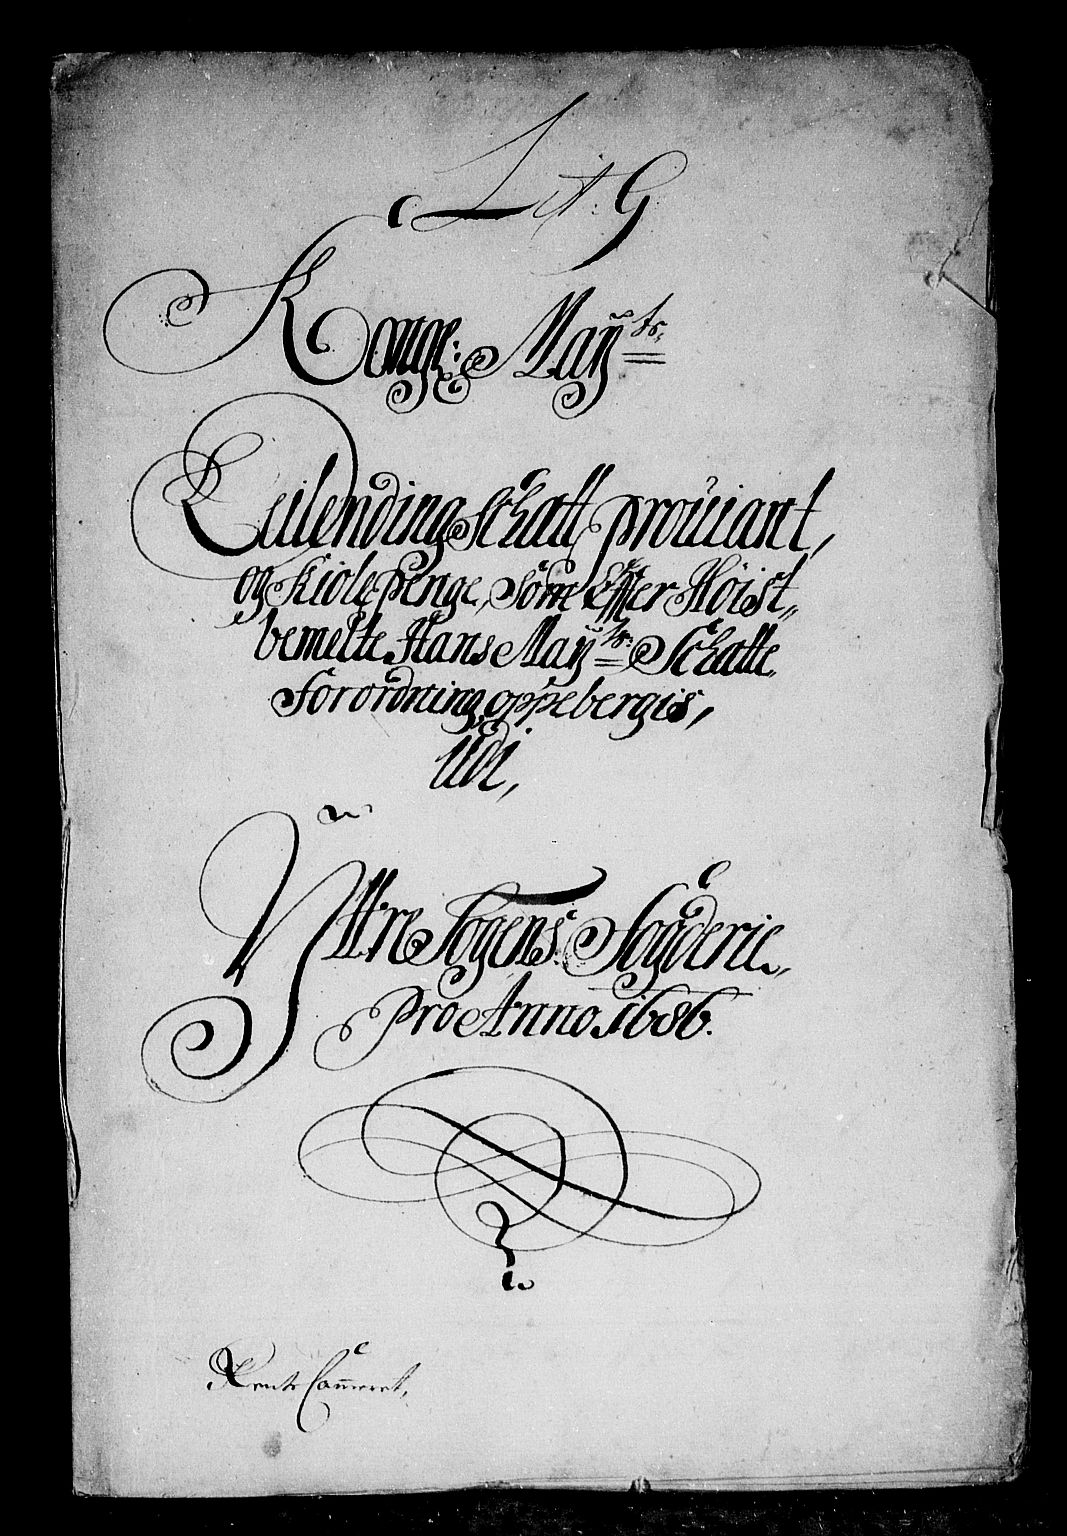 Lit: G
Konge: Maÿ.ts
Leilending Schatt, prouiant,
og Kiole Penge, Som Effter Høist„
bemelte Hans Maÿ.ts Schatte
Forordning, oppebergis,
Udi,
Ÿttre Sogens Fogderie„
Pro Anno 1686.
Rente Cam̄eret,